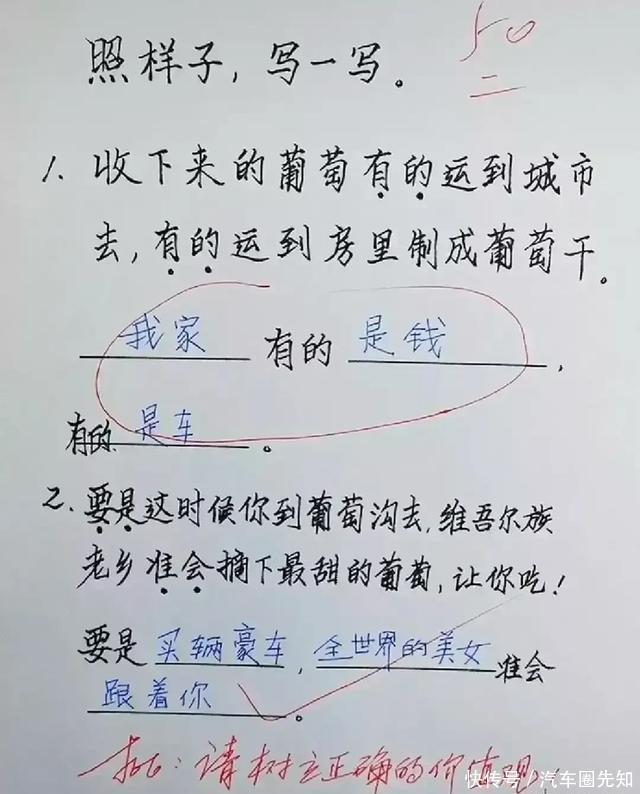 照样子，写一写。
50
1. 收下来的葡萄有的运到城市
去，有的运到房里制成葡萄干。
我家 有的 是钱，
有的 是车。
2. 要是这时候你到葡萄沟去，维吾尔族
老乡准会摘下最甜的葡萄，让你吃！
要是买辆豪车，全世界的美女准会
跟着你。
批：请树立正确的价值观！
快传号/汽车圈先知